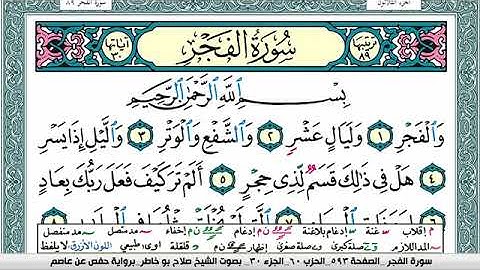 سورة الفجر ٨٩
الجزء الثلاثون
ترتيبها ٨٩
سُورَةُ الْفَجْرِ
آياتها ٣٠
بِسْمِ اللَّهِ الرَّحْمَٰنِ الرَّحِيمِ
وَالْفَجْرِ ١ وَلَيَالٍ عَشْرٍ ٢ وَالشَّفْعِ وَالْوَتْرِ ٣ وَاللَّيْلِ إِذَا يَسْرِ
٤ هَلْ فِي ذَٰلِكَ قَسَمٌ لِّذِي حِجْرٍ ٥ أَلَمْ تَرَ كَيْفَ فَعَلَ رَبُّكَ بِعَادٍ
م إقلاب غنة إدغام بلاغنة ن م إدغام ن م إخفاء مد متصل مد منفصل
المد اللازم صلة كبرى صلة صغرى إظهار ن م قلقلة أوى: طبيعي اللون الأزرق: لا يلفظ
سورة الفجر_الصفحة ٥٩٣_الحزب ٦٠_الجزء ٣٠_ بصوت الشيخ صلاح بو خاطر_برواية حفص عن عاصم